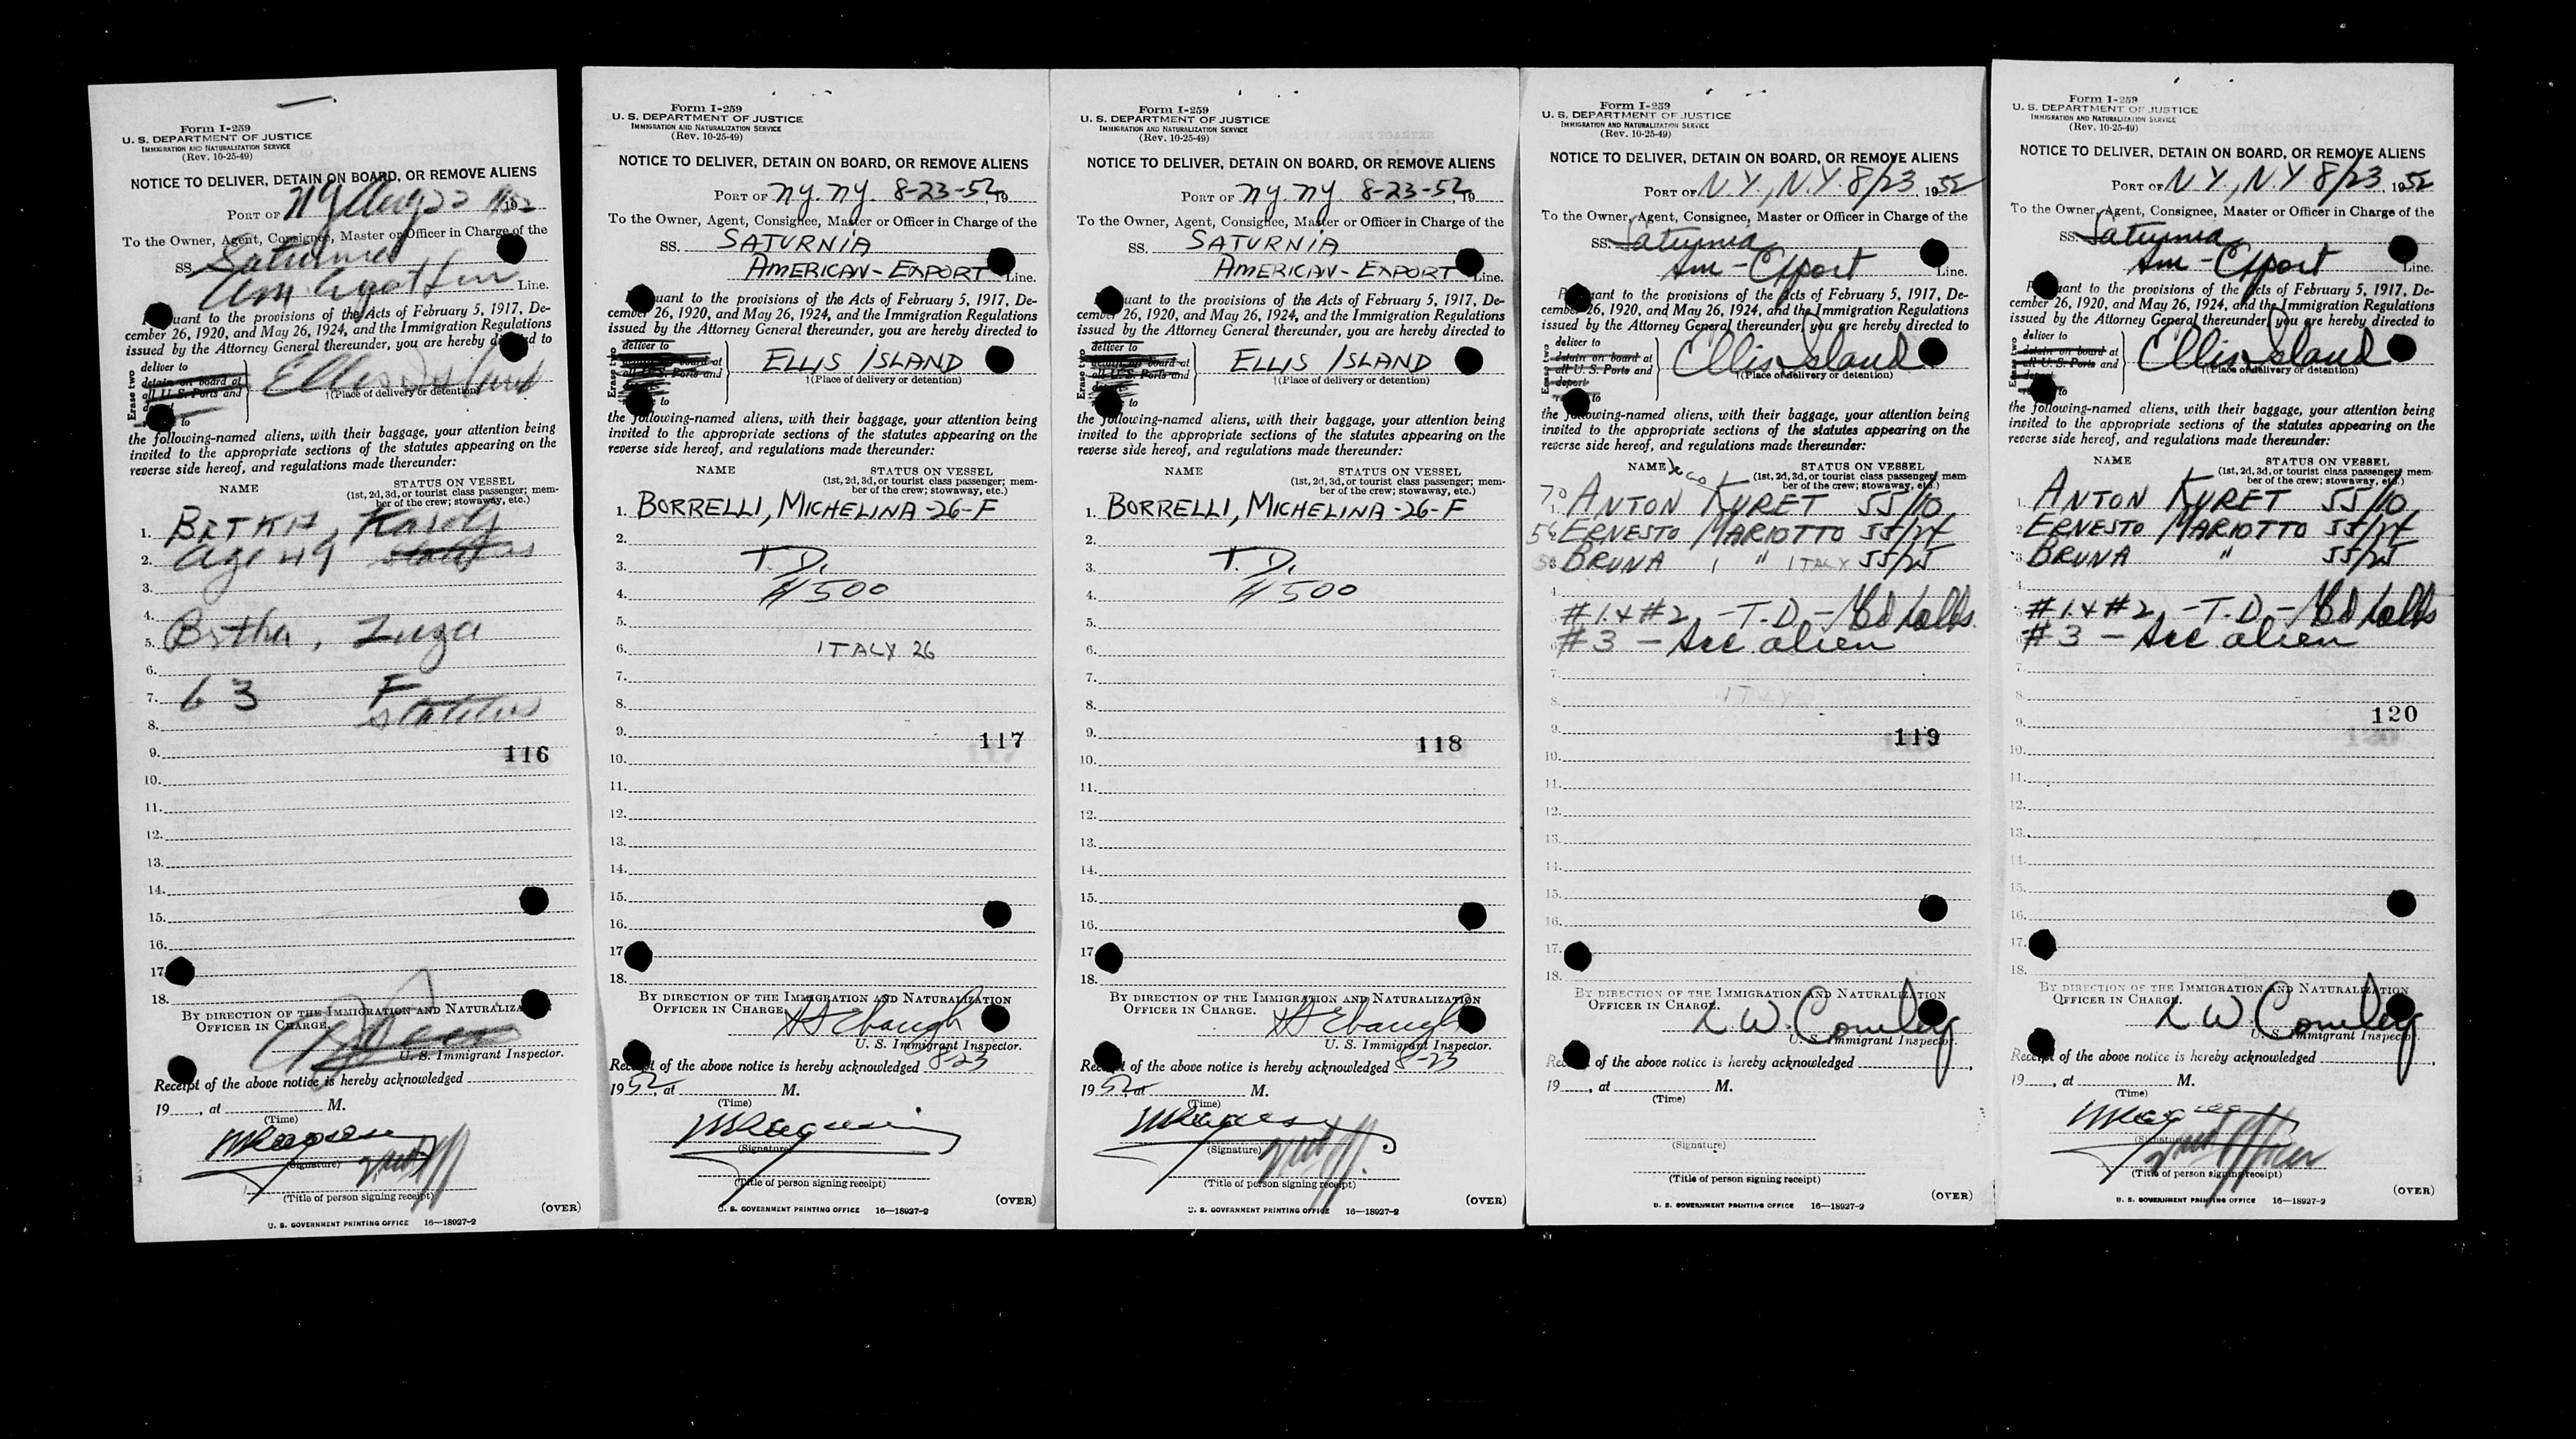 Form I-259
U. S. DEPARTMENT OF JUSTICE
IMMIGRATION AND NATURALIZATION SERVICE
(Rev. 10-25-49)
NOTICE TO DELIVER, DETAIN ON BOARD, OR REMOVE ALIENS
PORT OF NY Aug 19
To the Owner, Agent, Consignee, Master or Officer in Charge of the
SS. Saturnia
Line.
uant to the provisions of the Acts of February 5, 1917, De-
cember 26, 1920, and May 26, 1924, and the Immigration Regulations
issued by the Attorney General thereunder, you are hereby di ed to
Erase two
deliver to
detain on board at
all U. S. Ports and
to
Ellis Island
†(Place of delivery or detention)
the following-named aliens, with their baggage, your attention being
invited to the appropriate sections of the statutes appearing on the
reverse side hereof, and regulations made thereunder:
NAME STATUS ON VESSEL
(1st, 2d, 3d, or tourist class passenger; mem-
ber of the crew; stowaway, etc.)
1. Karoly
2. age 49
3.
4.
5.
6.
7. 63 F
8.
9. 116
10.
11.
12.
13.
14.
15.
16.
17
18.
BY DIRECTION OF THE IMMIGRATION AND NATURALIZA
OFFICER IN CHARGE.
U. S. Immigrant Inspector.
Receipt of the above notice is hereby acknowledged
19 , at M.
(Time)
(Signature)
(Title of person signing receipt)
(OVER)
U. S. GOVERNMENT PRINTING OFFICE 16—18927-2
Form I-259
U. S. DEPARTMENT OF JUSTICE
IMMIGRATION AND NATURALIZATION SERVICE
(Rev. 10-25-49)
NOTICE TO DELIVER, DETAIN ON BOARD, OR REMOVE ALIENS
PORT OF N.Y. N.Y. 8-23-52, 19
To the Owner, Agent, Consignee, Master or Officer in Charge of the
SS. SATURNIA
AMERICAN-EXPORT Line.
uant to the provisions of the Acts of February 5, 1917, De-
cember 26, 1920, and May 26, 1924, and the Immigration Regulations
issued by the Attorney General thereunder, you are hereby directed to
Erase two
deliver to
detain on board at
all U.S. Ports and
to
ELLIS ISLAND
†(Place of delivery or detention)
the following-named aliens, with their baggage, your attention being
invited to the appropriate sections of the statutes appearing on the
reverse side hereof, and regulations made thereunder:
NAME STATUS ON VESSEL
(1st, 2d, 3d, or tourist class passenger; mem-
ber of the crew; stowaway, etc.)
1. BORRELLI, MICHELINA-26-F
2.
3. T.D.
4. $500
5.
6. ITALY 26
7.
8.
9. 117
10.
11.
12.
13.
14.
15.
16.
17
18.
BY DIRECTION OF THE IMMIGRATION AND NATURALIZATION
OFFICER IN CHARGE.
Ebaugh
U. S. Immigrant Inspector.
Receipt of the above notice is hereby acknowledged 8-23
1952, at M.
(Time)
(Signature)
(Title of person signing receipt)
(OVER)
U. S. GOVERNMENT PRINTING OFFICE 16—18927-2
Form I-259
U. S. DEPARTMENT OF JUSTICE
IMMIGRATION AND NATURALIZATION SERVICE
(Rev. 10-25-49)
NOTICE TO DELIVER, DETAIN ON BOARD, OR REMOVE ALIENS
PORT OF N.Y. N.Y. 8-23-52, 19
To the Owner, Agent, Consignee, Master or Officer in Charge of the
SS. SATURNIA
AMERICAN-EXPORT Line.
uant to the provisions of the Acts of February 5, 1917, De-
cember 26, 1920, and May 26, 1924, and the Immigration Regulations
issued by the Attorney General thereunder, you are hereby directed to
Erase two
deliver to
detain on board at
all U.S. Ports and
to
ELLIS ISLAND
†(Place of delivery or detention)
the following-named aliens, with their baggage, your attention being
invited to the appropriate sections of the statutes appearing on the
reverse side hereof, and regulations made thereunder:
NAME STATUS ON VESSEL
(1st, 2d, 3d, or tourist class passenger; mem-
ber of the crew; stowaway, etc.)
1. BORRELLI, MICHELINA-26-F
2.
3. T.D.
4. $500
5.
6.
7.
8.
9. 118
10.
11.
12.
13.
14.
15.
16.
17
18.
BY DIRECTION OF THE IMMIGRATION AND NATURALIZATION
OFFICER IN CHARGE.
Ebaugh
U. S. Immigrant Inspector.
Receipt of the above notice is hereby acknowledged 8-23
1952, at M.
(Time)
(Signature)
(Title of person signing receipt)
(OVER)
U. S. GOVERNMENT PRINTING OFFICE 16—18927-2
Form I-259
U. S. DEPARTMENT OF JUSTICE
IMMIGRATION AND NATURALIZATION SERVICE
(Rev. 10-25-49)
NOTICE TO DELIVER, DETAIN ON BOARD, OR REMOVE ALIENS
PORT OF N.Y., N.Y. 8/23 1952
To the Owner, Agent, Consignee, Master or Officer in Charge of the
SS. Saturnia
Am-Export Line.
P uant to the provisions of the Acts of February 5, 1917, De-
cember 26, 1920, and May 26, 1924, and the Immigration Regulations
issued by the Attorney General thereunder, you are hereby directed to
Erase two
deliver to
detain on board at
all U.S. Ports and
deport
to
Ellis Island
†(Place of delivery or detention)
the following-named aliens, with their baggage, your attention being
invited to the appropriate sections of the statutes appearing on the
reverse side hereof, and regulations made thereunder:
NAME STATUS ON VESSEL
(1st, 2d, 3d, or tourist class passenger; mem-
ber of the crew; stowaway, etc.)
70 1. ANTON KURET 55/10
ERNESTO MARIOTTO 55/24
BRUNA " ITALY 55/25
#1 & #2 -T.D.-
#3 - Acc alien
7.
8. ITALY
9. 119
10.
11.
12.
13.
14.
15.
16.
17.
18.
BY DIRECTION OF THE IMMIGRATION AND NATURALIZATION
OFFICER IN CHARGE.
L W. Comley
U. S. Immigrant Inspector.
Receipt of the above notice is hereby acknowledged
19 , at M.
(Time)
(Signature)
(Title of person signing receipt)
(OVER)
U. S. GOVERNMENT PRINTING OFFICE 16—18927-2
Form I-259
U. S. DEPARTMENT OF JUSTICE
IMMIGRATION AND NATURALIZATION SERVICE
(Rev. 10-25-49)
NOTICE TO DELIVER, DETAIN ON BOARD, OR REMOVE ALIENS
PORT OF N.Y., N.Y 8/23 1952
To the Owner, Agent, Consignee, Master or Officer in Charge of the
SS. Saturnia
Am-Export Line.
P uant to the provisions of the Acts of February 5, 1917, De-
cember 26, 1920, and May 26, 1924, and the Immigration Regulations
issued by the Attorney General thereunder, you are hereby directed to
Erase two
deliver to
detain on board at
all U.S. Ports and
deport
to
Ellis Island
†(Place of delivery or detention)
the following-named aliens, with their baggage, your attention being
invited to the appropriate sections of the statutes appearing on the
reverse side hereof, and regulations made thereunder:
NAME STATUS ON VESSEL
(1st, 2d, 3d, or tourist class passenger; mem-
ber of the crew; stowaway, etc.)
1. ANTON KURET 55/10
2 ERNESTO MARIOTTO 55/24
3 BRUNA " 55/25
4
#1 & #2 -T.D.-
#3 - Acc alien
7.
8.
120
9.
10.
11.
12.
13.
14.
15.
16.
17.
18.
BY DIRECTION OF THE IMMIGRATION AND NATURALIZATION
OFFICER IN CHARGE.
L W Comley
U. S. Immigrant Inspector.
Receipt of the above notice is hereby acknowledged
19 , at M.
(Time)
(Signature)
(Title of person signing receipt)
(OVER)
U. S. GOVERNMENT PRINTING OFFICE 16—18927-2